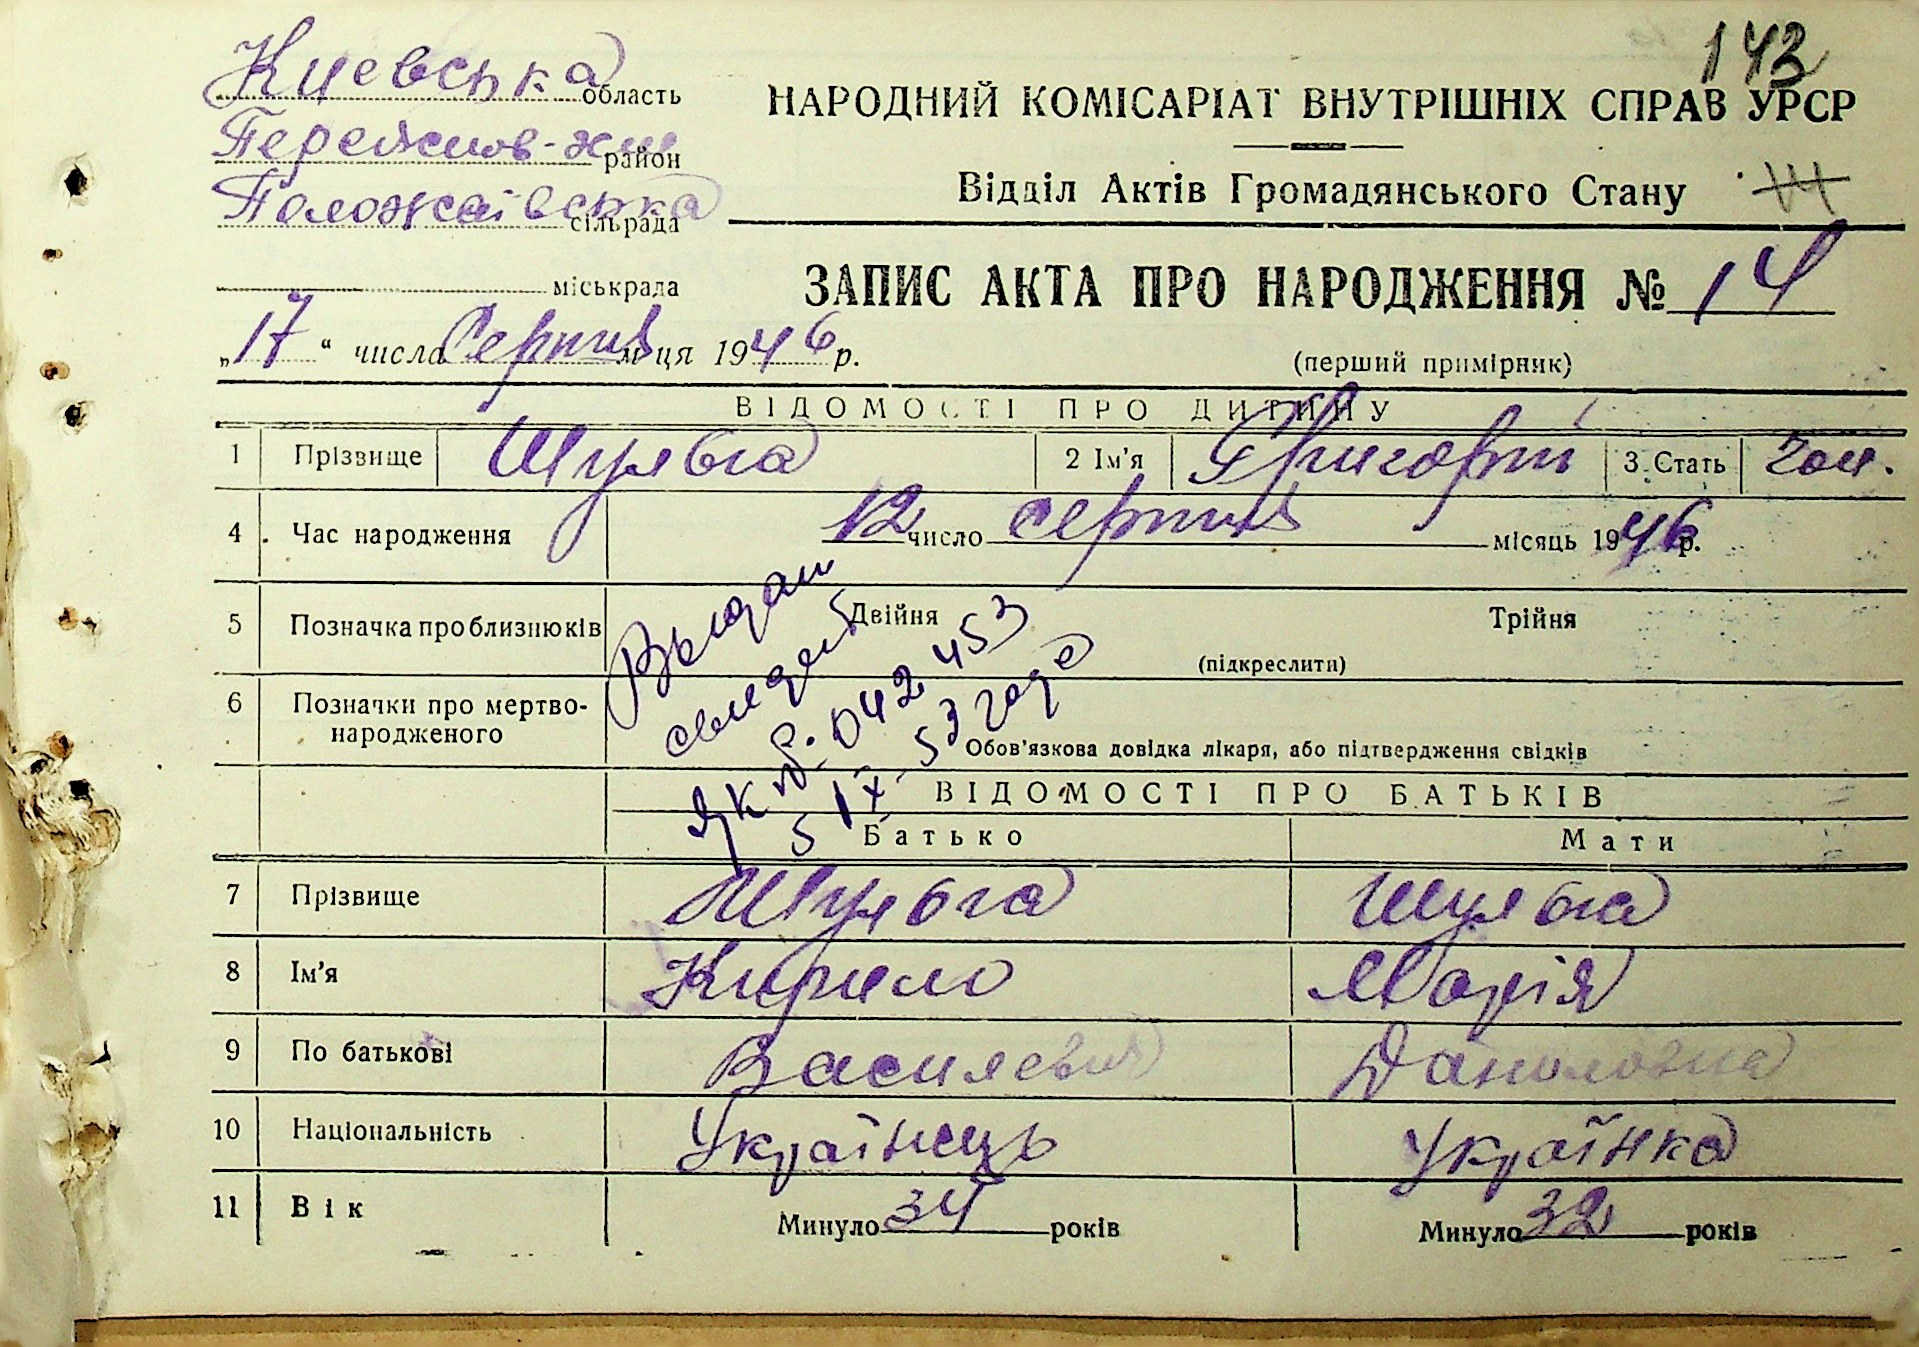 143
Киевська область
НАРОДНИЙ КОМІСАРІАТ ВНУТРІШНІХ СПРАВ УРСР
район
Відділ Актів Громадянського Стану
Положаївська сільрада
міськрада
ЗАПИС АКТА ПРО НАРОДЖЕННЯ № 14
„17“ числа Серпня м-ця 1946 р.
(перший примірник)
ВІДОМОСТІ ПРО ДИТИНУ
1 Прізвище Шульга 2 Ім'я Григорій 3. Стать чол.
4 Час народження 12 число серпня місяць 1946 р.
5 Позначка про близнюків Двійня Трійня
(підкреслити)
6 Позначки про мертво-
народженого
Обов'язкова довідка лікаря, або підтвердження свідків
Выдан
свидет
ЯК № 042453
5 IX-53 года
ВІДОМОСТІ ПРО БАТЬКІВ
Батько Мати
7 Прізвище Шульга Шульга
8 Ім'я Кирило Марія
9 По батькові Василевич
10 Національність Українець Українка
11 Вік Минуло 34 років Минуло 32 років